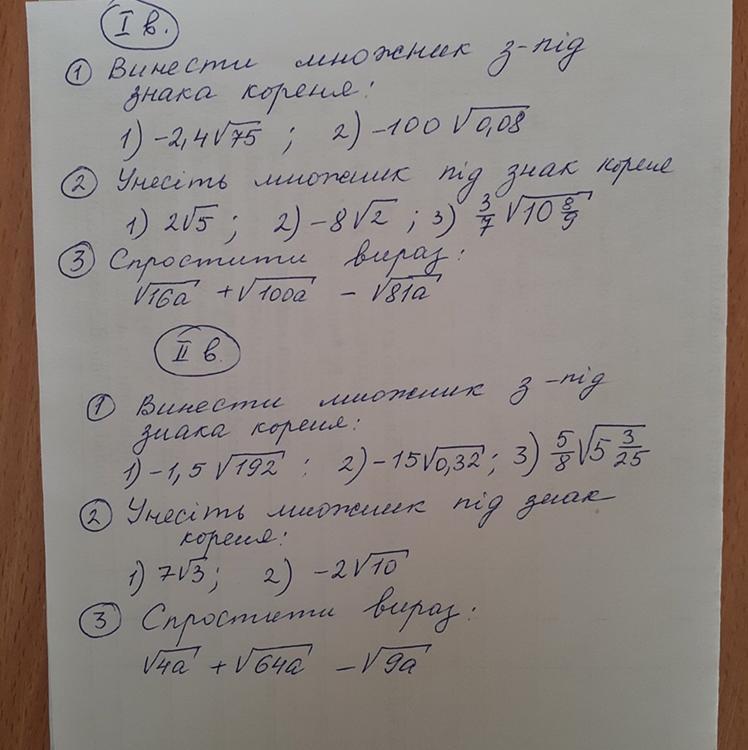 I в.
① Винести множник з-під
знака кореня:
1) -2,4√75 ; 2) -100 √0,08
② Унесіть множник під знак кореня
1) 2√5 ; 2) -8√2 ; 3) 3/7 √10 8/9
③ Спростити вираз:
√16a + √100a - √81a
II в.
① Винести множник з-під
знака кореня:
1) -1,5 √192 ; 2) -15√0,32 ; 3) 5/8 √5 3/25
② Унесіть множник під знак
кореня:
1) 7√3 ; 2) -2√10
③ Спростити вираз:
√4a + √64a - √9a